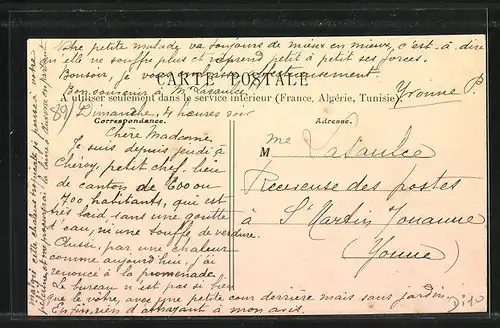 Votre petite malade va toujours de mieux en mieux, c'est-à-dire
qu'elle ne souffre plus et reprend petit à petit ses forces.
Bonsoir, je vous
Bon souvenir à Mr Lasaulce
Yvonne P.
CARTE POSTALE
A utiliser seulement dans le service intérieur (France, Algérie, Tunisie)
Dimanche, 4 heures soir
Correspondance.
Adresse.
Chère Madame,
Je suis depuis jeudi à
Chéroy, petit chef-lieu
de canton de 600 ou
700 habitants, qui est
très laid sans une goutte
d'eau, ni une touffe de verdure.
Aussi, par une chaleur
comme aujourd'hui, j'ai
renoncé à la promenade.
Le bureau n'est pas si bien
que le vôtre, avec une petite cour derrière mais sans jardin.
Enfin, rien d'amusant à mon avis.
Malgré cette chaleur tropicale je pense à votre
(89)
M me Lasaulce
Receveuse des postes
à St Martin
(Yonne)